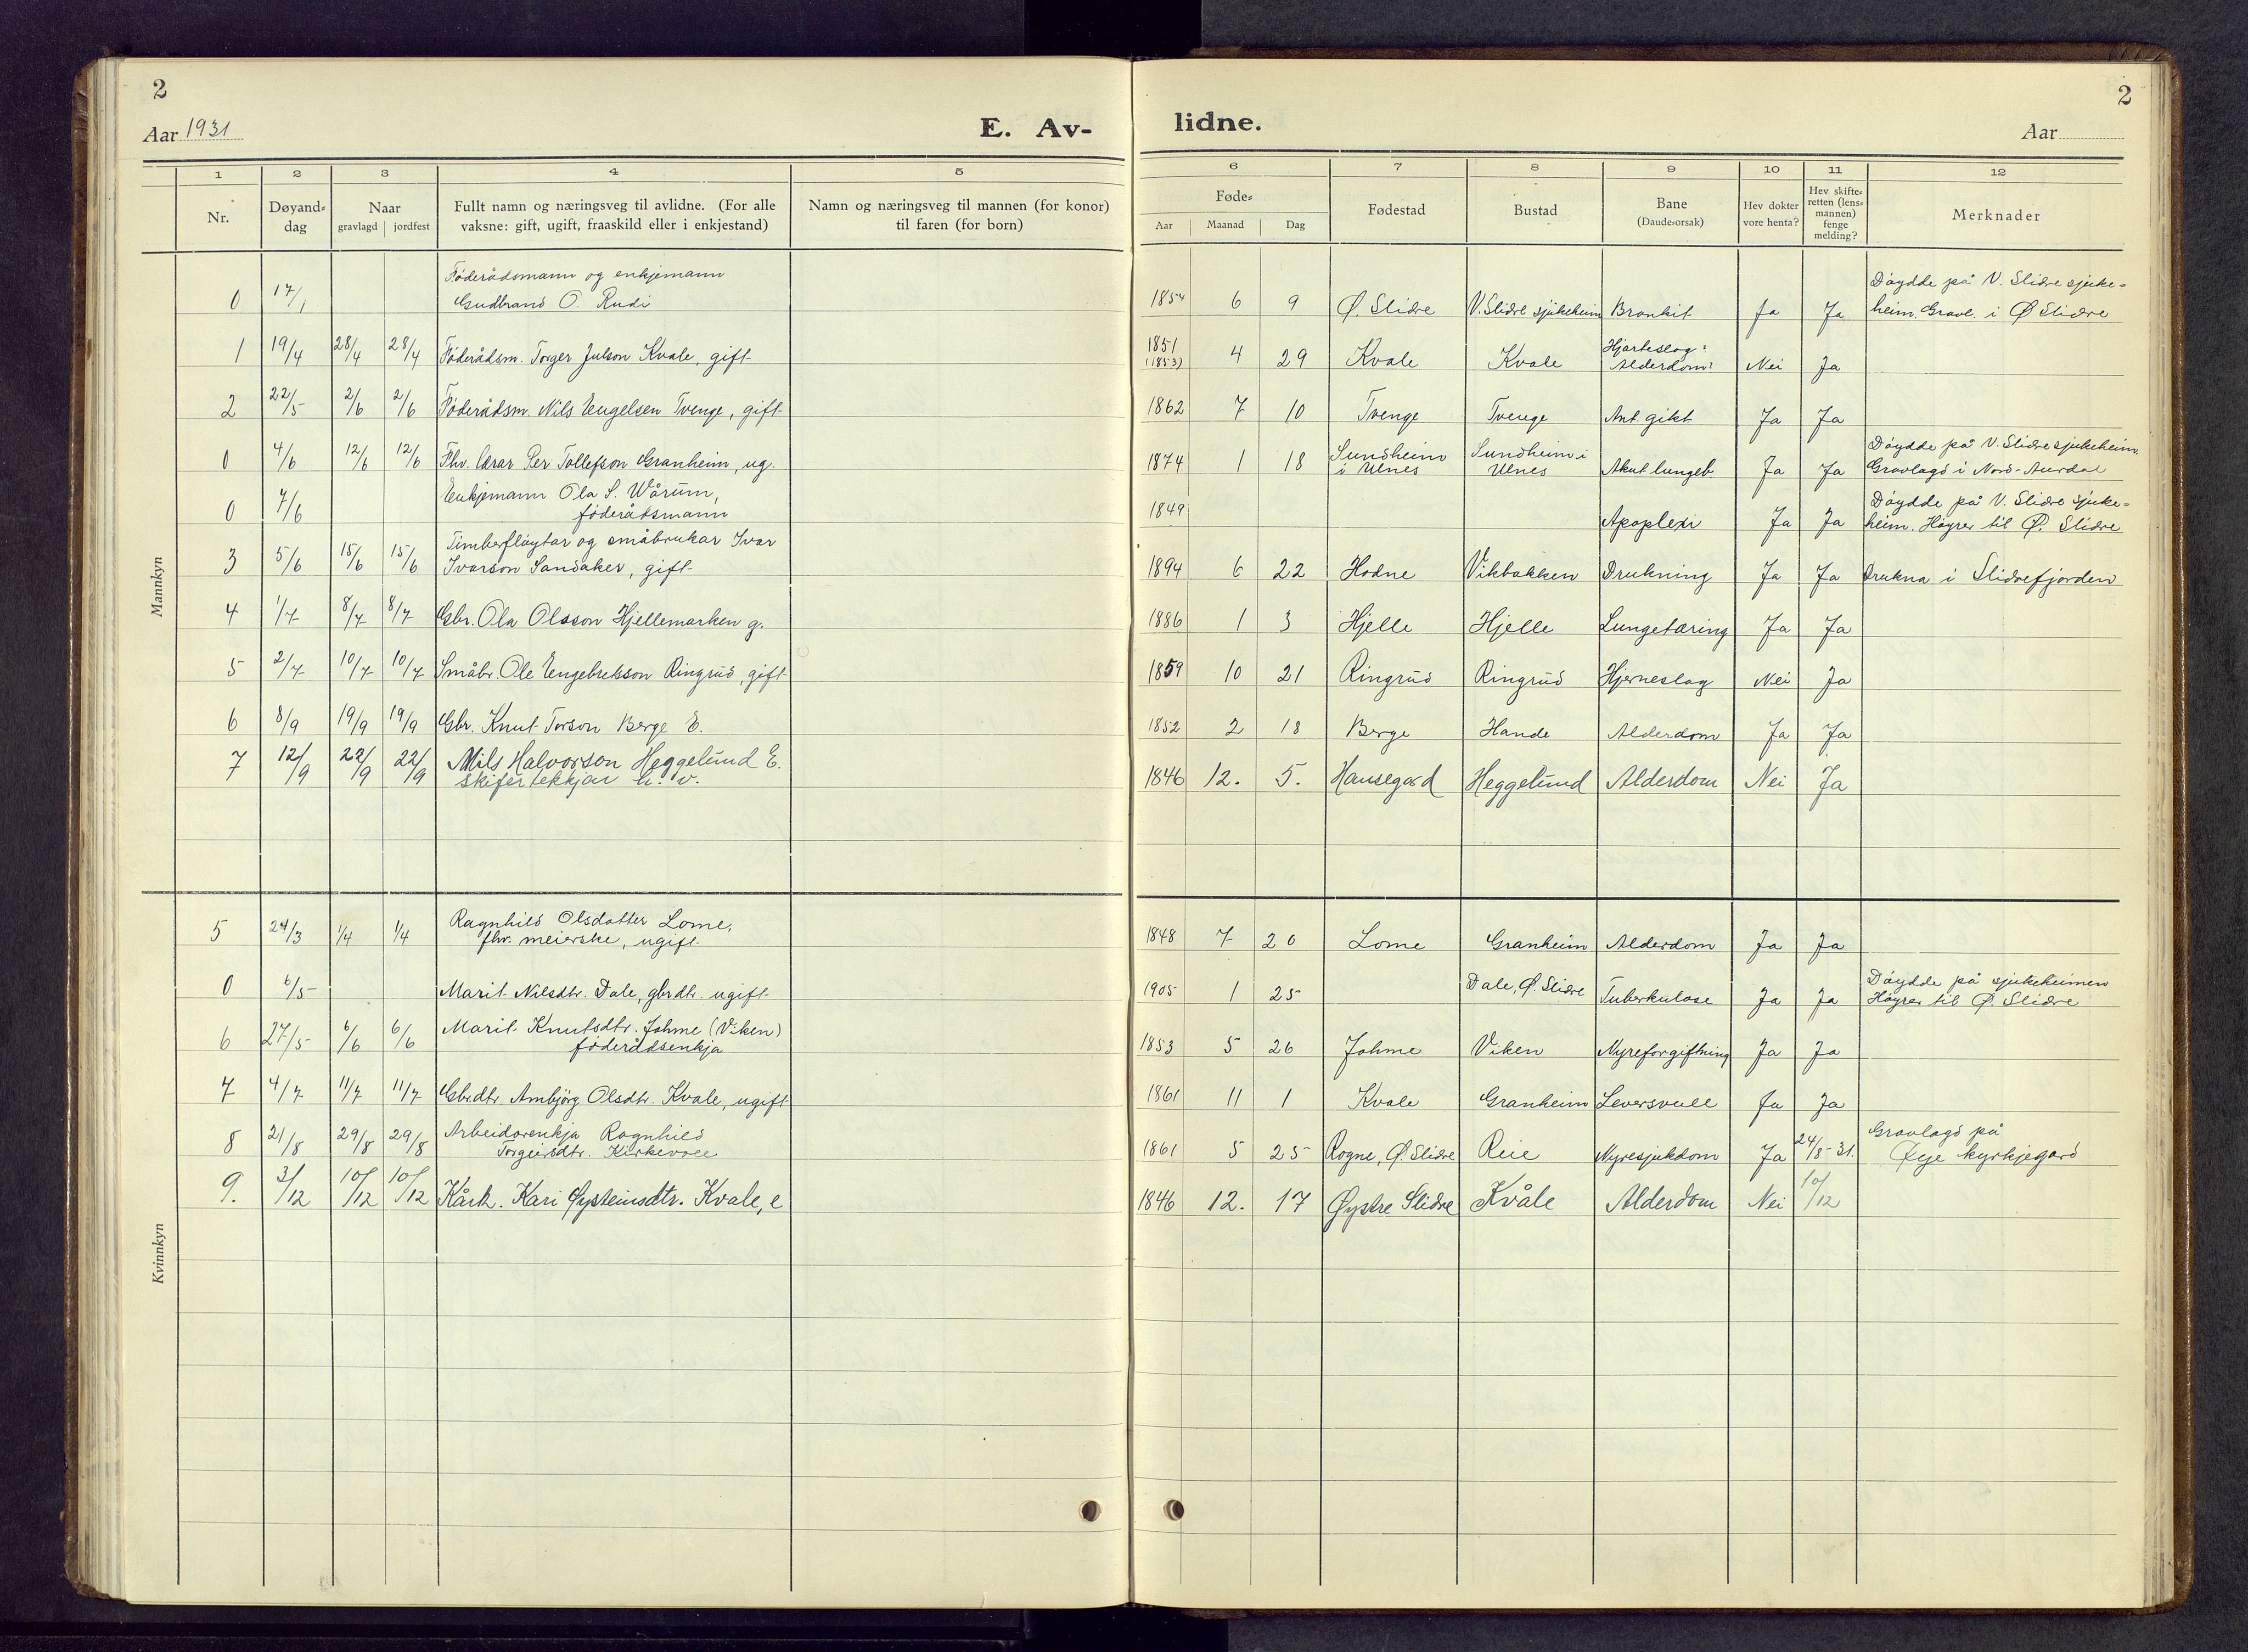 2
2
Aar 1931
E. Av-
lidne.
Aar
1 2 3 4 5 6 7 8 9 10 11 12
Nr. Døyand-dag Naar gravlagd jordfest Fullt namn og næringsveg til avlidne. (For alle vaksne: gift, ugift, fraaskild eller i enkjestand) Namn og næringsveg til mannen (for konor) til faren (for born) Føde- Aar Maanad Dag Fødestad Bustad Bane (Daude-orsak) Hev dokter vore henta? Hev skifte-retten (lens-mannen) fenge melding? Merknader
Mannkyn
0 17/1 Føderådsmann og enkjemann Gudbrand O. Rudi 1854 6 9 Ø. Slidre V. Slidre sjukeheim Bronkit Ja Ja Døydde på V. Slidre sjuke-heim. Gravl. i Ø Slidre
1 19/4 28/4 28/4 Føderådsm. Torger Julson Kvale, gift 1851 (1853) 4 29 Kvale Kvale Hjarteslag: Alderdom: Nei Ja
2 22/5 2/6 2/6 Føderådsm. Nils Engelsen Tvenge, gift 1862 7 10 Tvenge Tvenge Ant gikt Ja Ja
0 4/6 12/6 12/6 Fhv. lærar Per Tollefson Granheim, ug. 1874 1 18 Sundheim i Ulnes Sundheim i Ulnes Akut lungeb. Ja Ja Døydde på V. Slidre sjukeheim. Gravlagd i Nord-Aurdal
0 7/6 Enkjemann Ola S. Wårum, føderådsmann 1849 Apoplexi Ja Ja Døydde på V. Slidre sjuke-heim. Høyrer til Ø. Slidre
3 5/6 15/6 15/6 Timberfløytar og småbrukar Ivar Ivarson Sandaker, gift 1894 6 22 Hodne Vikbakken Drukning Ja Ja Drukna i Slidrefjorden
4 1/7 8/7 8/7 Gbr. Ola Olsson Hjellemarken g. 1886 1 3 Hjelle Hjelle Lungetæring Ja Ja
5 2/7 10/7 10/7 Småbr. Ole Engebretsson Ringrud, gift 1859 10 21 Ringrud Ringrud Hjerneslag Nei Ja
6 8/9 19/9 19/9 Gbr. Knut Torson Berge E. 1852 2 18 Berge Hande Alderdom Ja Ja
7 12/9 22/9 22/9 Nils Halvorson Heggelund E. skifertekkjar h. v. 1846 12. 5. Hausegard Heggelund Alderdom Nei Ja
Kvinnkyn
5 24/3 1/4 1/4 Ragnhild Olsdatter Lome, fhv. meierske, ugift. 1848 7 20 Lome Granheim Alderdom Ja Ja
0 6/5 Marit Nilsdtr. Dale, gbrdtr. ugift 1905 1 25 Dale, Ø. Slidre Tuberkulose Ja Ja Døydde på sjukeheimen Høyrer til Ø. Slidre
6 27/5 6/6 6/6 Marit Knutsdtr. Jahme (Viken) føderådsenkja 1853 5 26 Jahme Viken Nyreforgiftning Ja Ja
7 4/7 11/7 11/7 Gbrdtr. Ambjørg Olsdtr. Kvale, ugift 1861 11 1 Kvale Granheim Leversvull Ja Ja
8 21/8 29/8 29/8 Arbeidarenkja Ragnhild Torgeirsdtr. Kirkevoll 1861 5 25 Rogne, Ø. Slidre Reie Nyresjukdom Ja 24/8-31. Gravlagd på Øye kyrkjegard
9. 3/12 10/12 10/12 Kårk. Kari Øysteinsdtr. Kvale, e 1846 12. 17 Øystre Slidre Kvåle Alderdom Nei 10/12